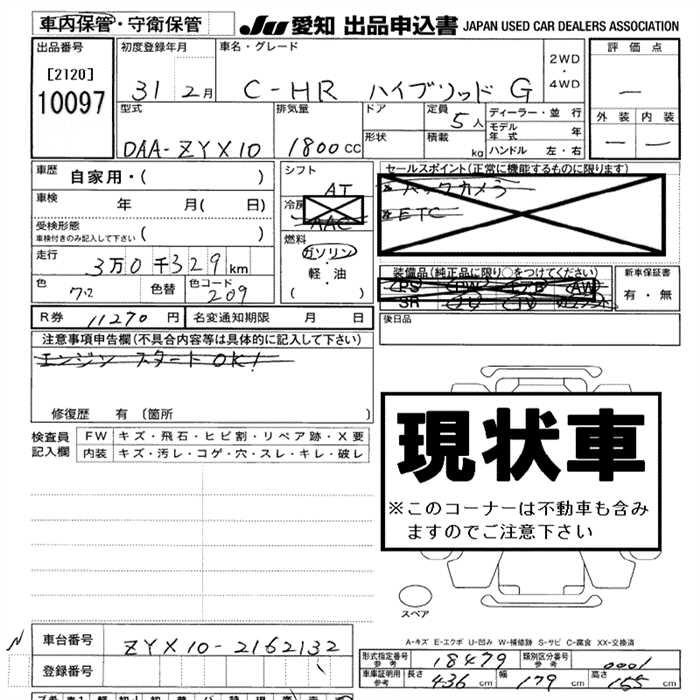 車内保管・守衛保管
JU 愛知 出品申込書 JAPAN USED CAR DEALERS ASSOCIATION
出品番号
[2120]
10097
初度登録年月
31 2月
車名・グレード
C-HR ハイブリッド G
2WD
・
4WD
評価点
—
外装 内装
— —
型式
DAA-ZYX10
排気量
1800CC
ドア
形状
定員
5人
積載
kg
ディーラー・並行
モデル年式 年
ハンドル 左・右
車歴 自家用・( )
車検 年 月( 日)
受検形態
車検付きのみ記入して下さい ( )
走行 3万0千329km
色
色替
色コード
209
シフト
AT
冷房
AAC
燃料
ガソリン
軽・油
( )
セールスポイント(正常に機能するものに限ります)
バックカメラ
ETC
装備品(純正品に限り○をつけてください)
PS PW エアB AW
SR
新車保証書
有・無
R券 11270円
名変通知期限 月 日
後日品
注意事項申告欄(不具合内容等は具体的に記入して下さい)
エンジン スタートOK!
修復歴 有 (箇所 )
検査員
記入欄
FW キズ・飛石・ヒビ割・リペア跡・X要
内装 キズ・汚レ・コゲ・穴・スレ・キレ・破レ
現状車
※このコーナーは不動車も含み
ますのでご注意下さい
スペア
A-キズ E-エクボ U-凹み W-補修跡 S-サビ C-腐食 XX-交換済
N
車台番号 ZYX10-2162132
登録番号
形式指定番号
参考
18479
類別区分番号
参考
0001
車庫証明用
参考
長さ 436cm 幅 179cm 高さ 155cm